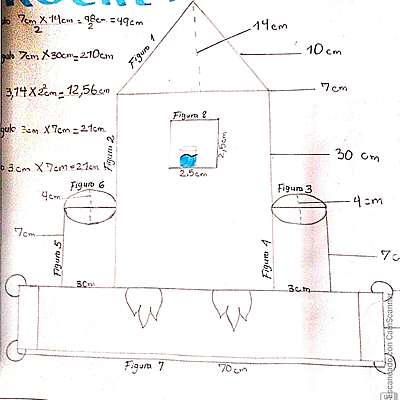 ROCKET
7cm X 14cm = 98cm = 49cm
2 2
7cm X 30cm = 210cm
3,14 X 2² cm = 12,56cm
gulo 3cm X 7cm = 21cm
3cm X 7cm = 21cm
Figura 1
14cm
10cm
7cm
Figura 2
Figura 8
2,5cm
2.5cm
30 cm
Figura 6
4cm
Figura 3
4cm
7cm
Figura 5
Figura 4
7c
3cm
3cm
Figura 7
70cm
Escaneado con CamScanner
CS